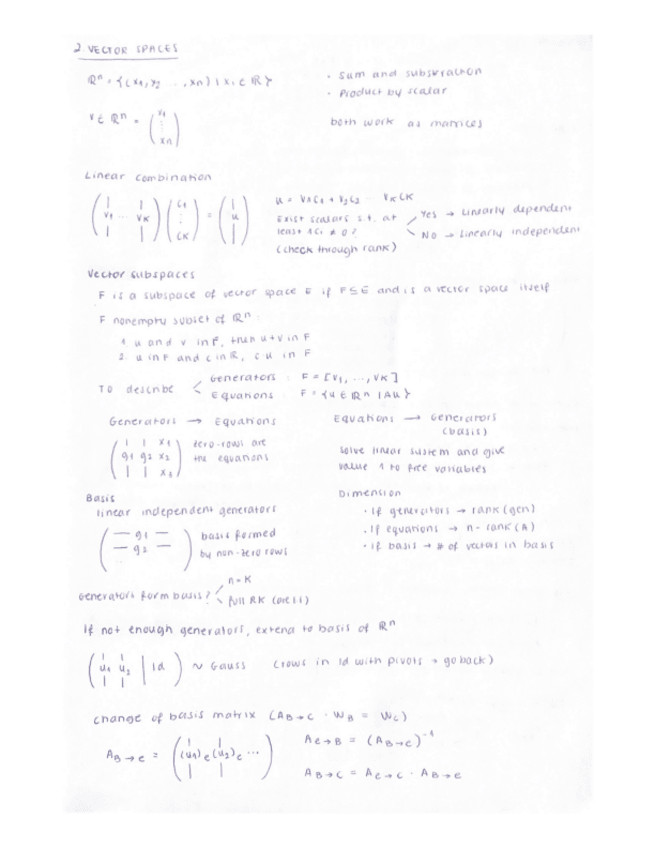 2. VECTOR SPACES
ℝⁿ = {(x₁, x₂ ..., xn) | xᵢ ∈ ℝ}
· Sum and substraction
· Product by scalar
v ∈ ℝⁿ = (x₁ ⋮ xn)
both work as matrices
Linear combination
(v₁ ... vk)(c₁ ⋮ ck) = (u)
u = v₁c₁ + v₂c₂ ... vkck
Exist scalars s.t. at
least 1 cᵢ ≠ 0?
Yes → Linearly dependent
No → Linearly independent
(check through rank)
Vector subspaces
F is a subspace of vector space E if F ⊆ E and is a vector space itself
F nonempty subset of ℝⁿ:
1. u and v in F, then u+v in F
2. u in F and c in ℝ, c·u in F
To describe
Generators : F = [v₁, ..., vk]
Equations : F = {u ∈ ℝⁿ | Au}
Generators → Equations
(g₁ g₂ x₁ x₂ x₃)
zero-rows are
the equations
Equations → Generators
(basis)
solve linear system and give
value 1 to free variables
Basis
linear independent generators
(— g₁ — — g₂ —)
basis formed
by non-zero rows
Dimension
· If generators → rank(gen)
· If equations → n - rank(A)
· if basis → # of vectors in basis
Generators form basis?
n = K
full RK
If not enough generators, extend to basis of ℝⁿ
(u₁ u₂ | Id) ~ Gauss (rows in Id with pivots → go back)
change of basis matrix (A_B→C · W_B = W_C)
A_B→e = ((u₁)e (u₂)e ...)
A_e→B = (A_B→e)⁻¹
A_B→C = A_e→C · A_B→e